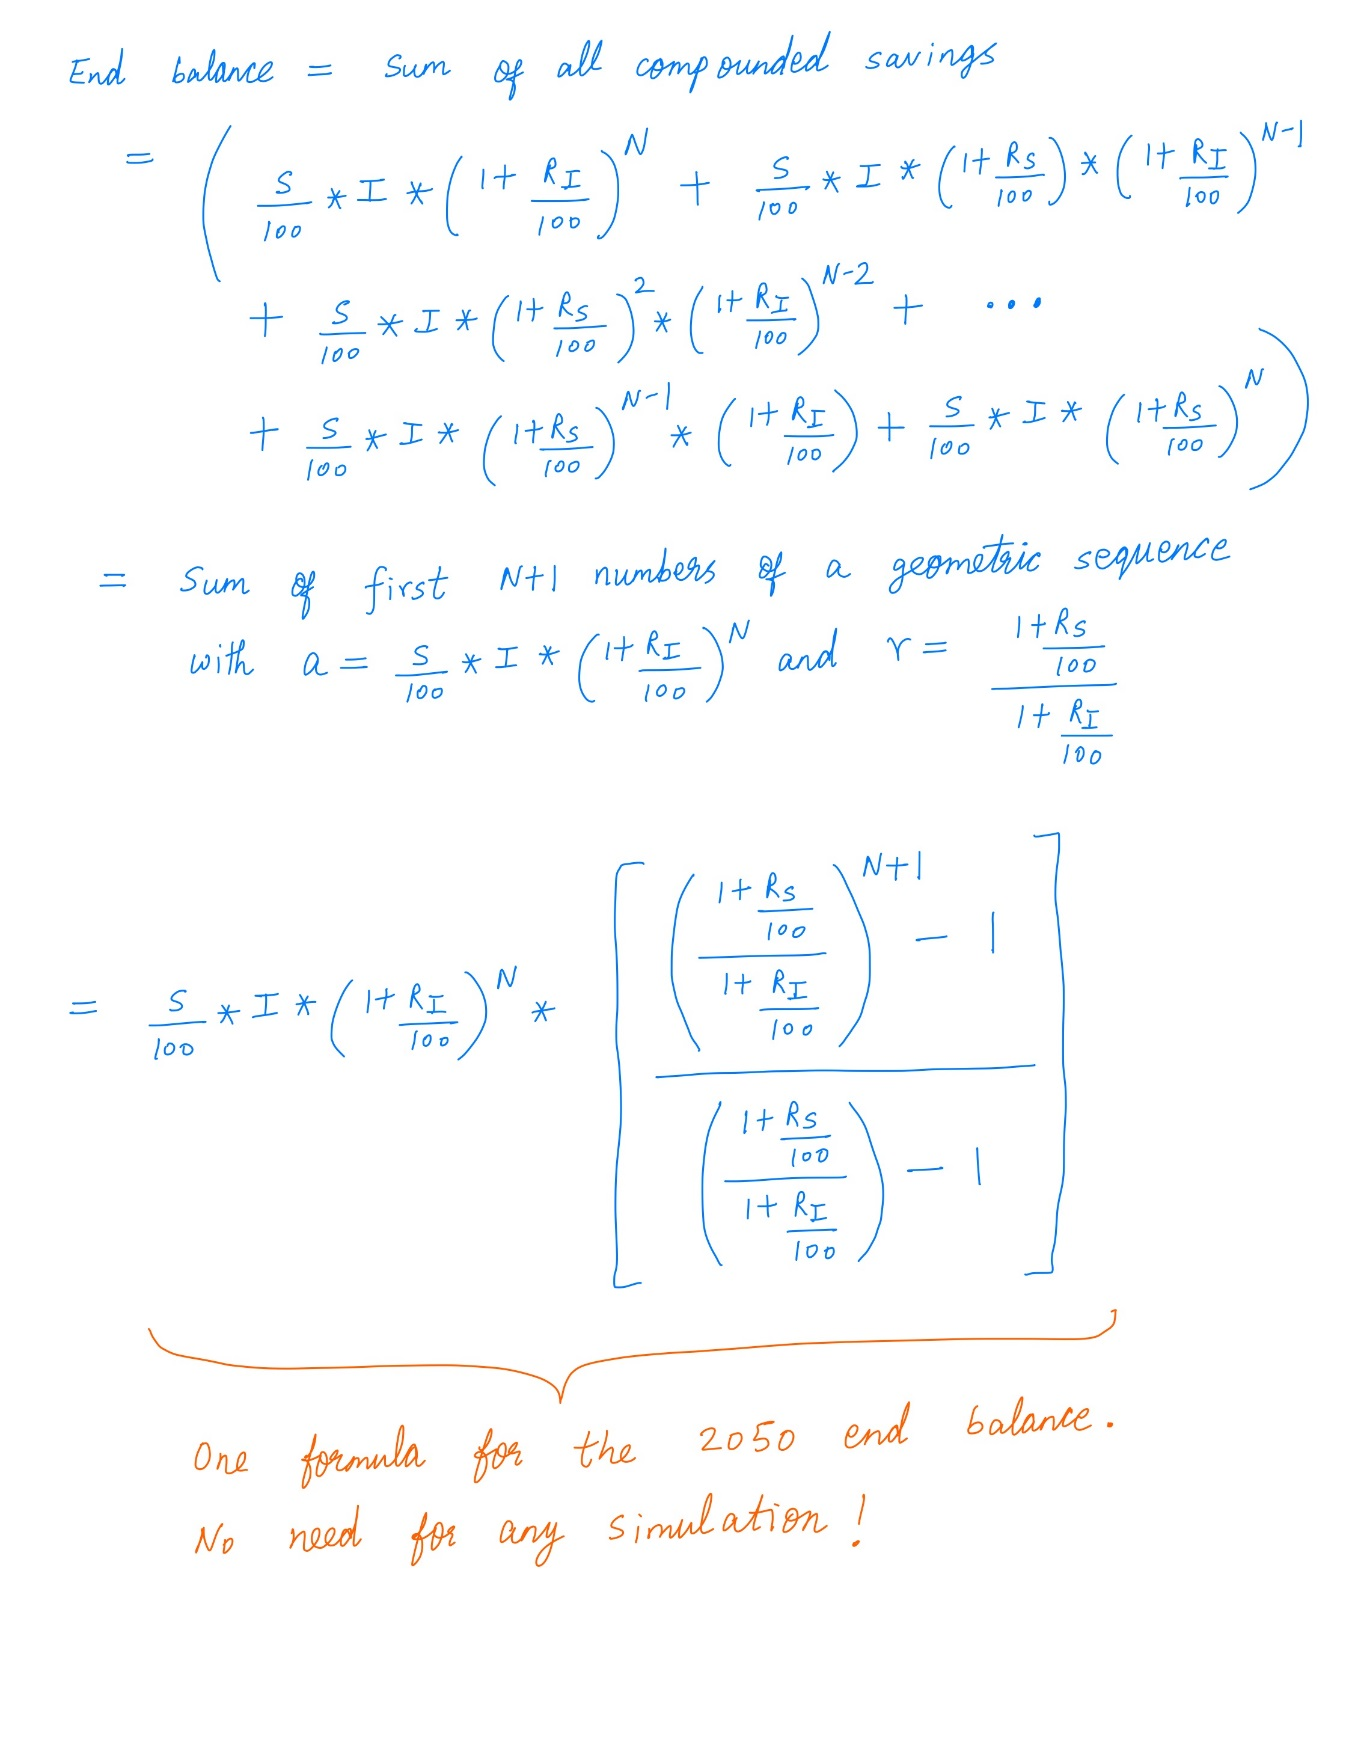 End balance = Sum of all compounded savings
= ( S/100 * I * (1 + R_I/100)^N + S/100 * I * (1 + R_S/100) * (1 + R_I/100)^(N-1)
+ S/100 * I * (1 + R_S/100)^2 * (1 + R_I/100)^(N-2) + ...
+ S/100 * I * (1 + R_S/100)^(N-1) * (1 + R_I/100) + S/100 * I * (1 + R_S/100)^N )
= Sum of first N+1 numbers of a geometric sequence
with a = S/100 * I * (1 + R_I/100)^N and r = (1 + R_S/100)/(1 + R_I/100)
= S/100 * I * (1 + R_I/100)^N * [ (((1 + R_S/100)/(1 + R_I/100))^(N+1) - 1) / (((1 + R_S/100)/(1 + R_I/100)) - 1) ]
One formula for the 2050 end balance.
No need for any simulation!